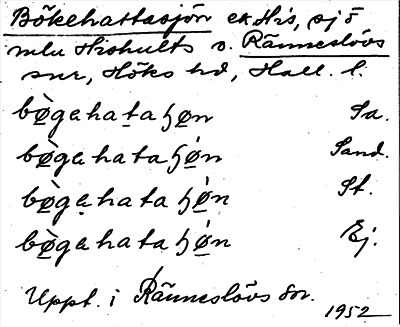 Bökehattasjön ek. His, sjö
mlu Hishults o. Ränneslövs
snr, Höks hd, Hall. l.
bø̀gahataɧøn Sa.
bø̀gahataɧǿn Sand.
bø̀gahataɧǿn St.
bø̀gahataɧǿn Ej.
Uppt. i Ränneslövs sn.
1952